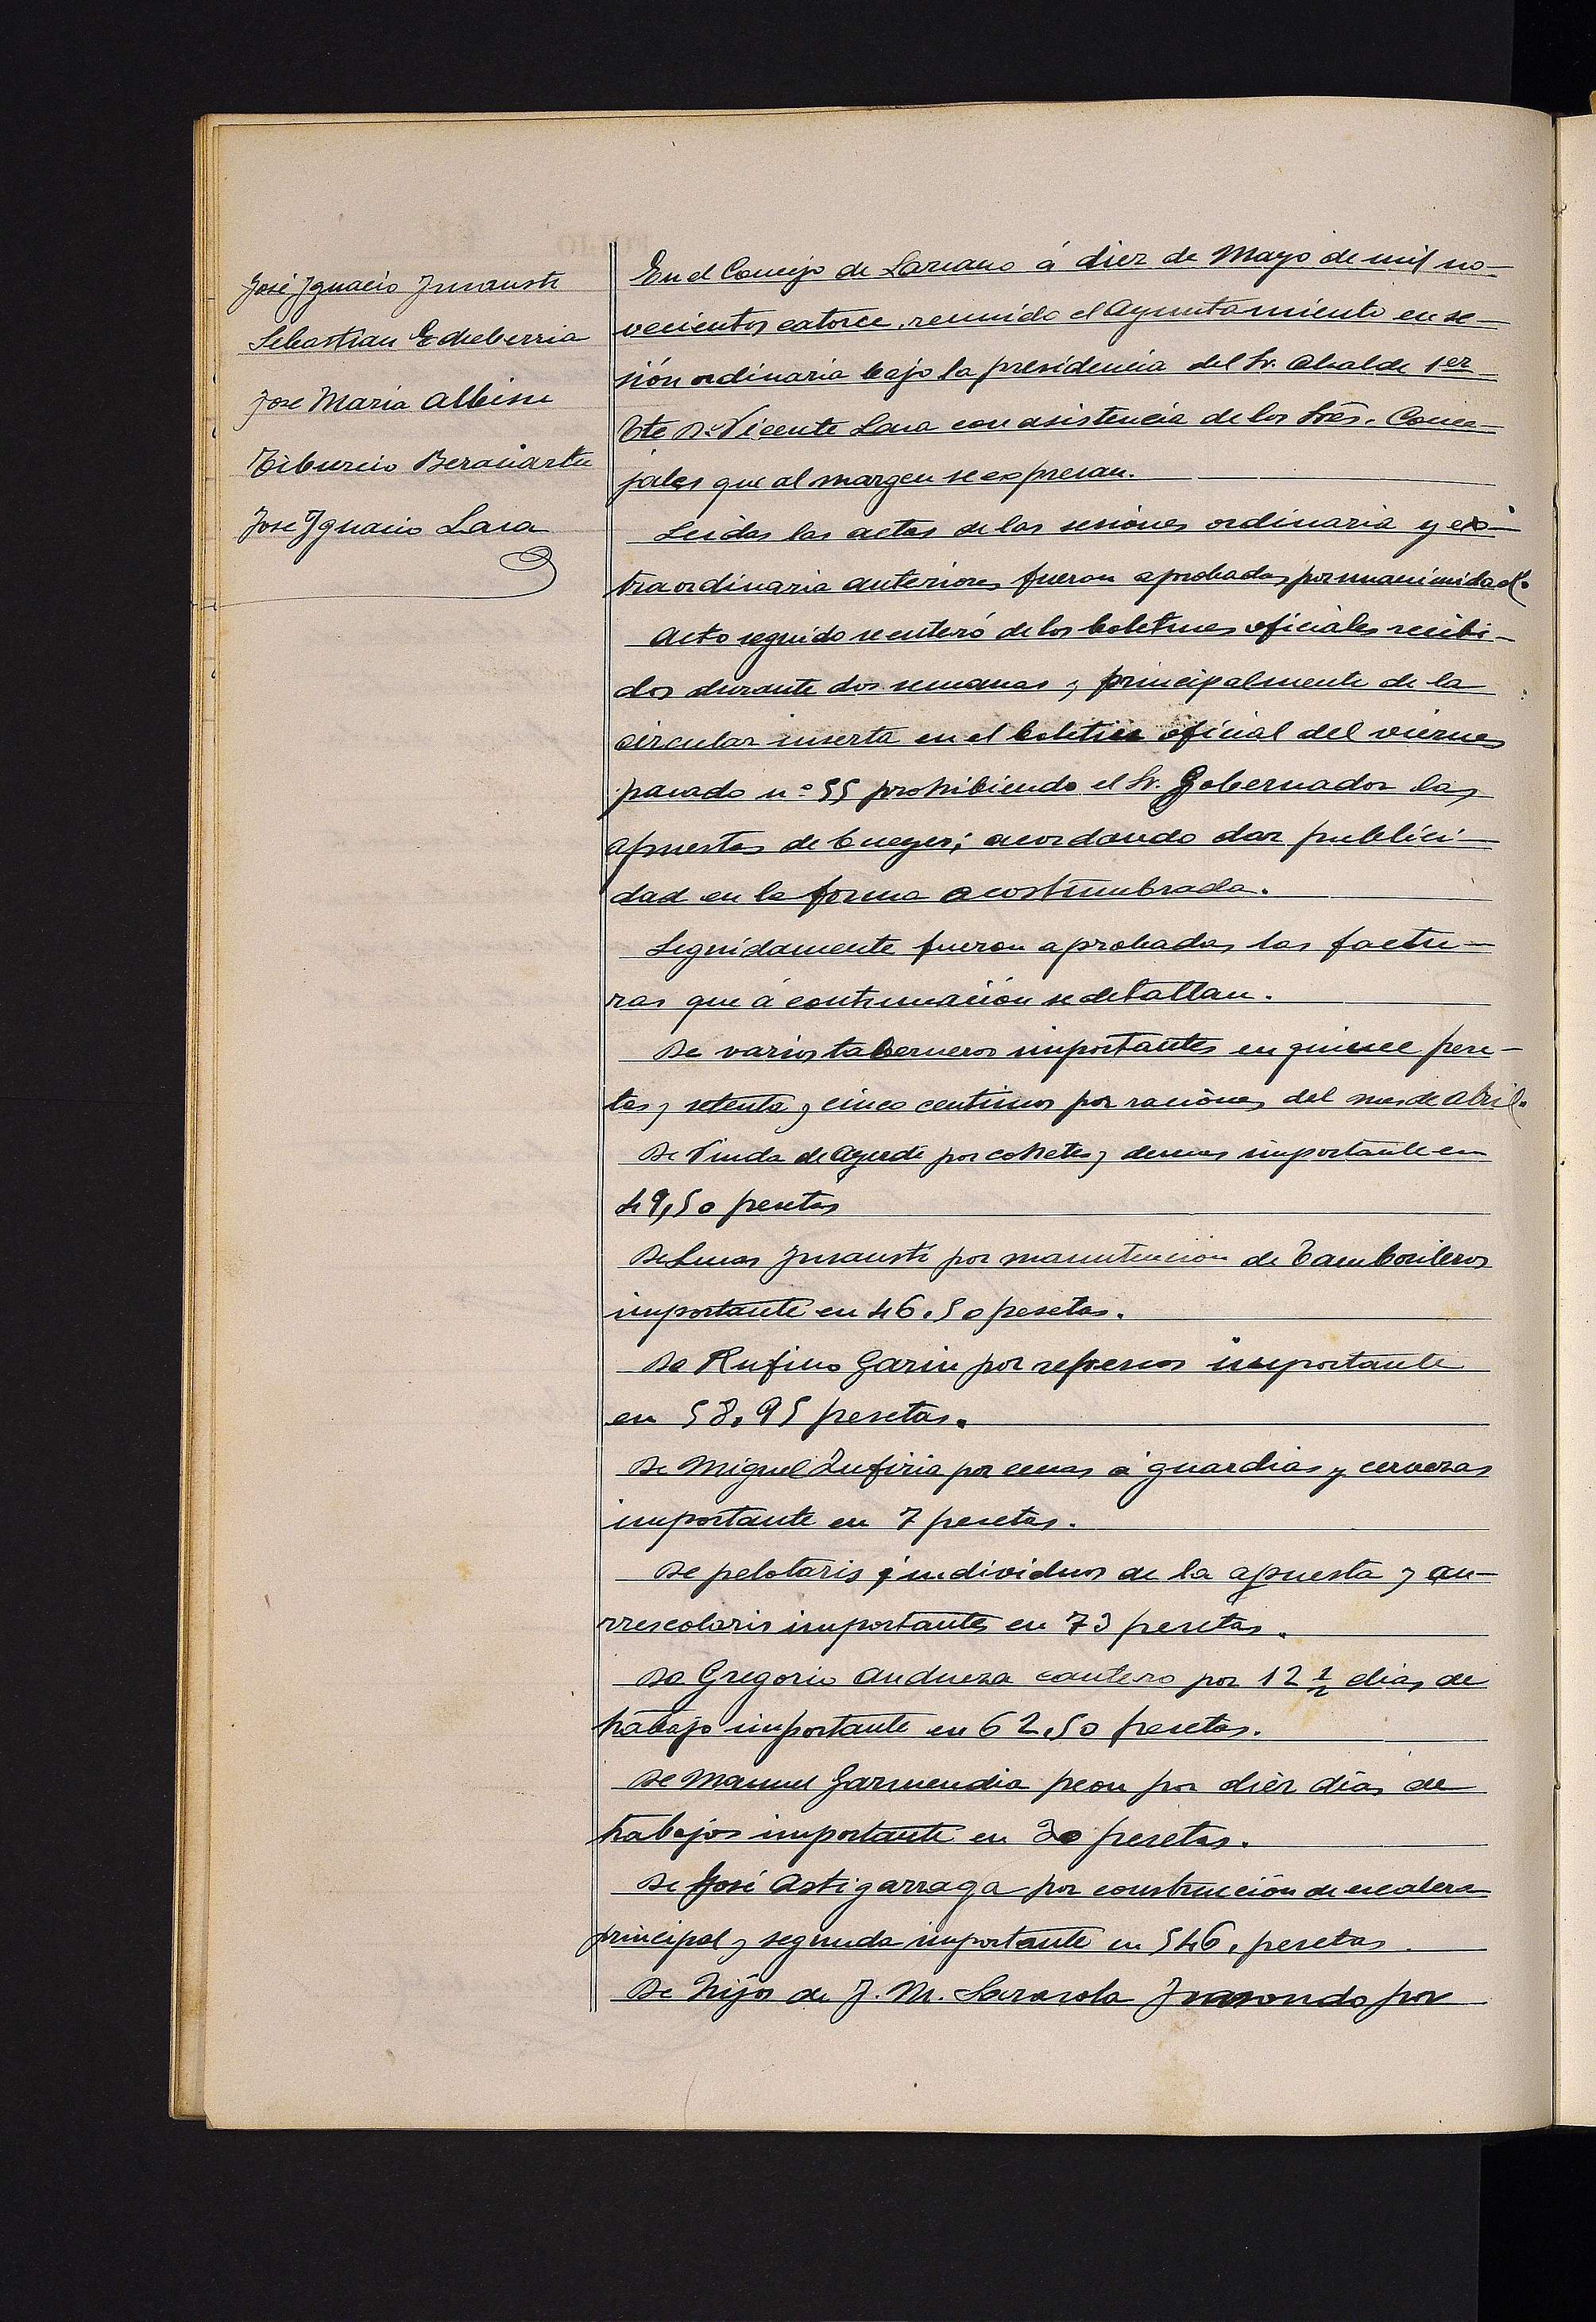 José Ygnacio Insausti
Sebastian Echeberria
Jose Maria Albisu
Tiburcio Beraiartu
Jose Ygnacio Lasa
En el Concejo de Lazcano á diez de Mayo de mil no-
vecientos catorce, reunido el Ayuntamiento en se-
sión ordinaria bajo la presidencia del Sr. Alcalde 1er
Tte Dn Vicente Lasa con asistencia de los Srēs. Conce-
jales que al margen se expresan.
Leidas las actas de las sesiones ordinaria y ex-
traordinaria anteriores fueron aprobadas por unanimidad.
Acto seguido se enteró de los boletines oficiales recibi-
dos durante dos semanas y principalmente de la
circular inserta en el boletin oficial del viernes
pasado nº 55 prohibiendo el Sr. Gobernador las
apuestas de bueyes; acordando dar publici-
dad en la forma acostumbrada.
Seguidamente fueron aprobadas las factu-
ras que á continuación se detallan.
De varios taberneros importantes en quince pese-
tas y setenta y cinco centimos por raciones del mes de Abril.
De Viuda de Agudi por cohetes y demas importante en
49,50 pesetas
De Lucas Insausti por manutencion de Tamborileros
importante en 46.50 pesetas.
De Rufino Garin por refrescos importante
en 58,95 pesetas.
De Miguel Zufiria por cenas á guardias y cervezas
importante en 7 pesetas.
De pelotaris é individuos de la apuesta y au-
rrescolaris importantes en 73 pesetas.
De Gregorio Andueza cantero por 12 1/2 dias de
trabajo importante en 62,50 pesetas.
De Manuel Garmendia peon por diez dias de
trabajos importante en 30 pesetas.
De José Astigarraga por construcción de escalera
principal y segunda importante en 546, pesetas.
De Hijos de J. M. Sarasola por